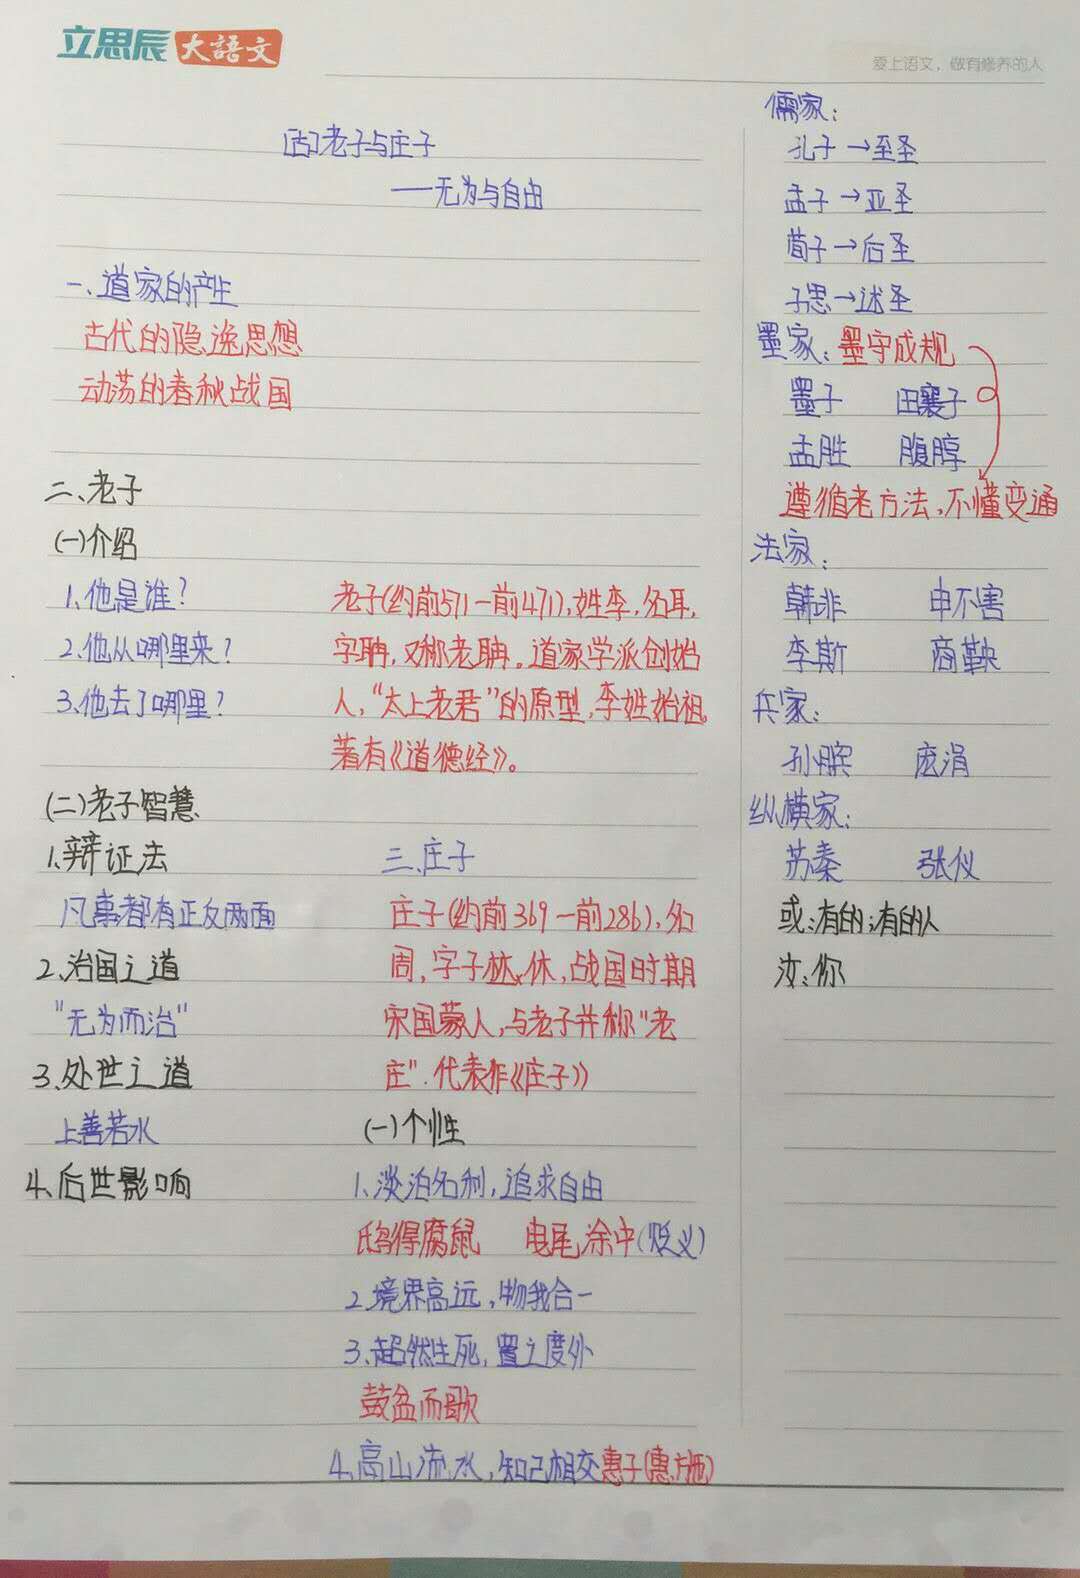 立思辰大語文
爱上语文，做有修养的人
[古]老子与庄子
——无为与自由
一、道家的产生
古代的隐逸思想
动荡的春秋战国
二、老子
(一)介绍
1.他是谁?
2.他从哪里来?
3.他去了哪里?
老子(约前571—前471),姓李,名耳,
字聃,又称老聃。道家学派创始
人,“太上老君”的原型,李姓始祖,
著有《道德经》。
(二)老子智慧
1.辩证法
凡事都有正反两面
2.治国之道
“无为而治”
3.处世之道
上善若水
4.后世影响
三.庄子
庄子(约前369—前286),名
周,字子休,战国时期
宋国蒙人,与老子并称“老
庄”.代表作《庄子》
(一)个性
1.淡泊名利,追求自由
鸱得腐鼠 曳尾涂中(贬义)
2.境界高远,物我合一
3.超然生死,置之度外
鼓盆而歌
4.高山流水,知己相交惠子(惠施)
儒家:
孔子→至圣
孟子→亚圣
荀子→后圣
子思→述圣
墨家:墨守成规
墨子 田襄子
孟胜 腹䵍
遵循老方法,不懂变通
法家:
韩非 申不害
李斯 商鞅
兵家:
孙膑 庞涓
纵横家:
苏秦 张仪
或:有的;有的人
汝:你